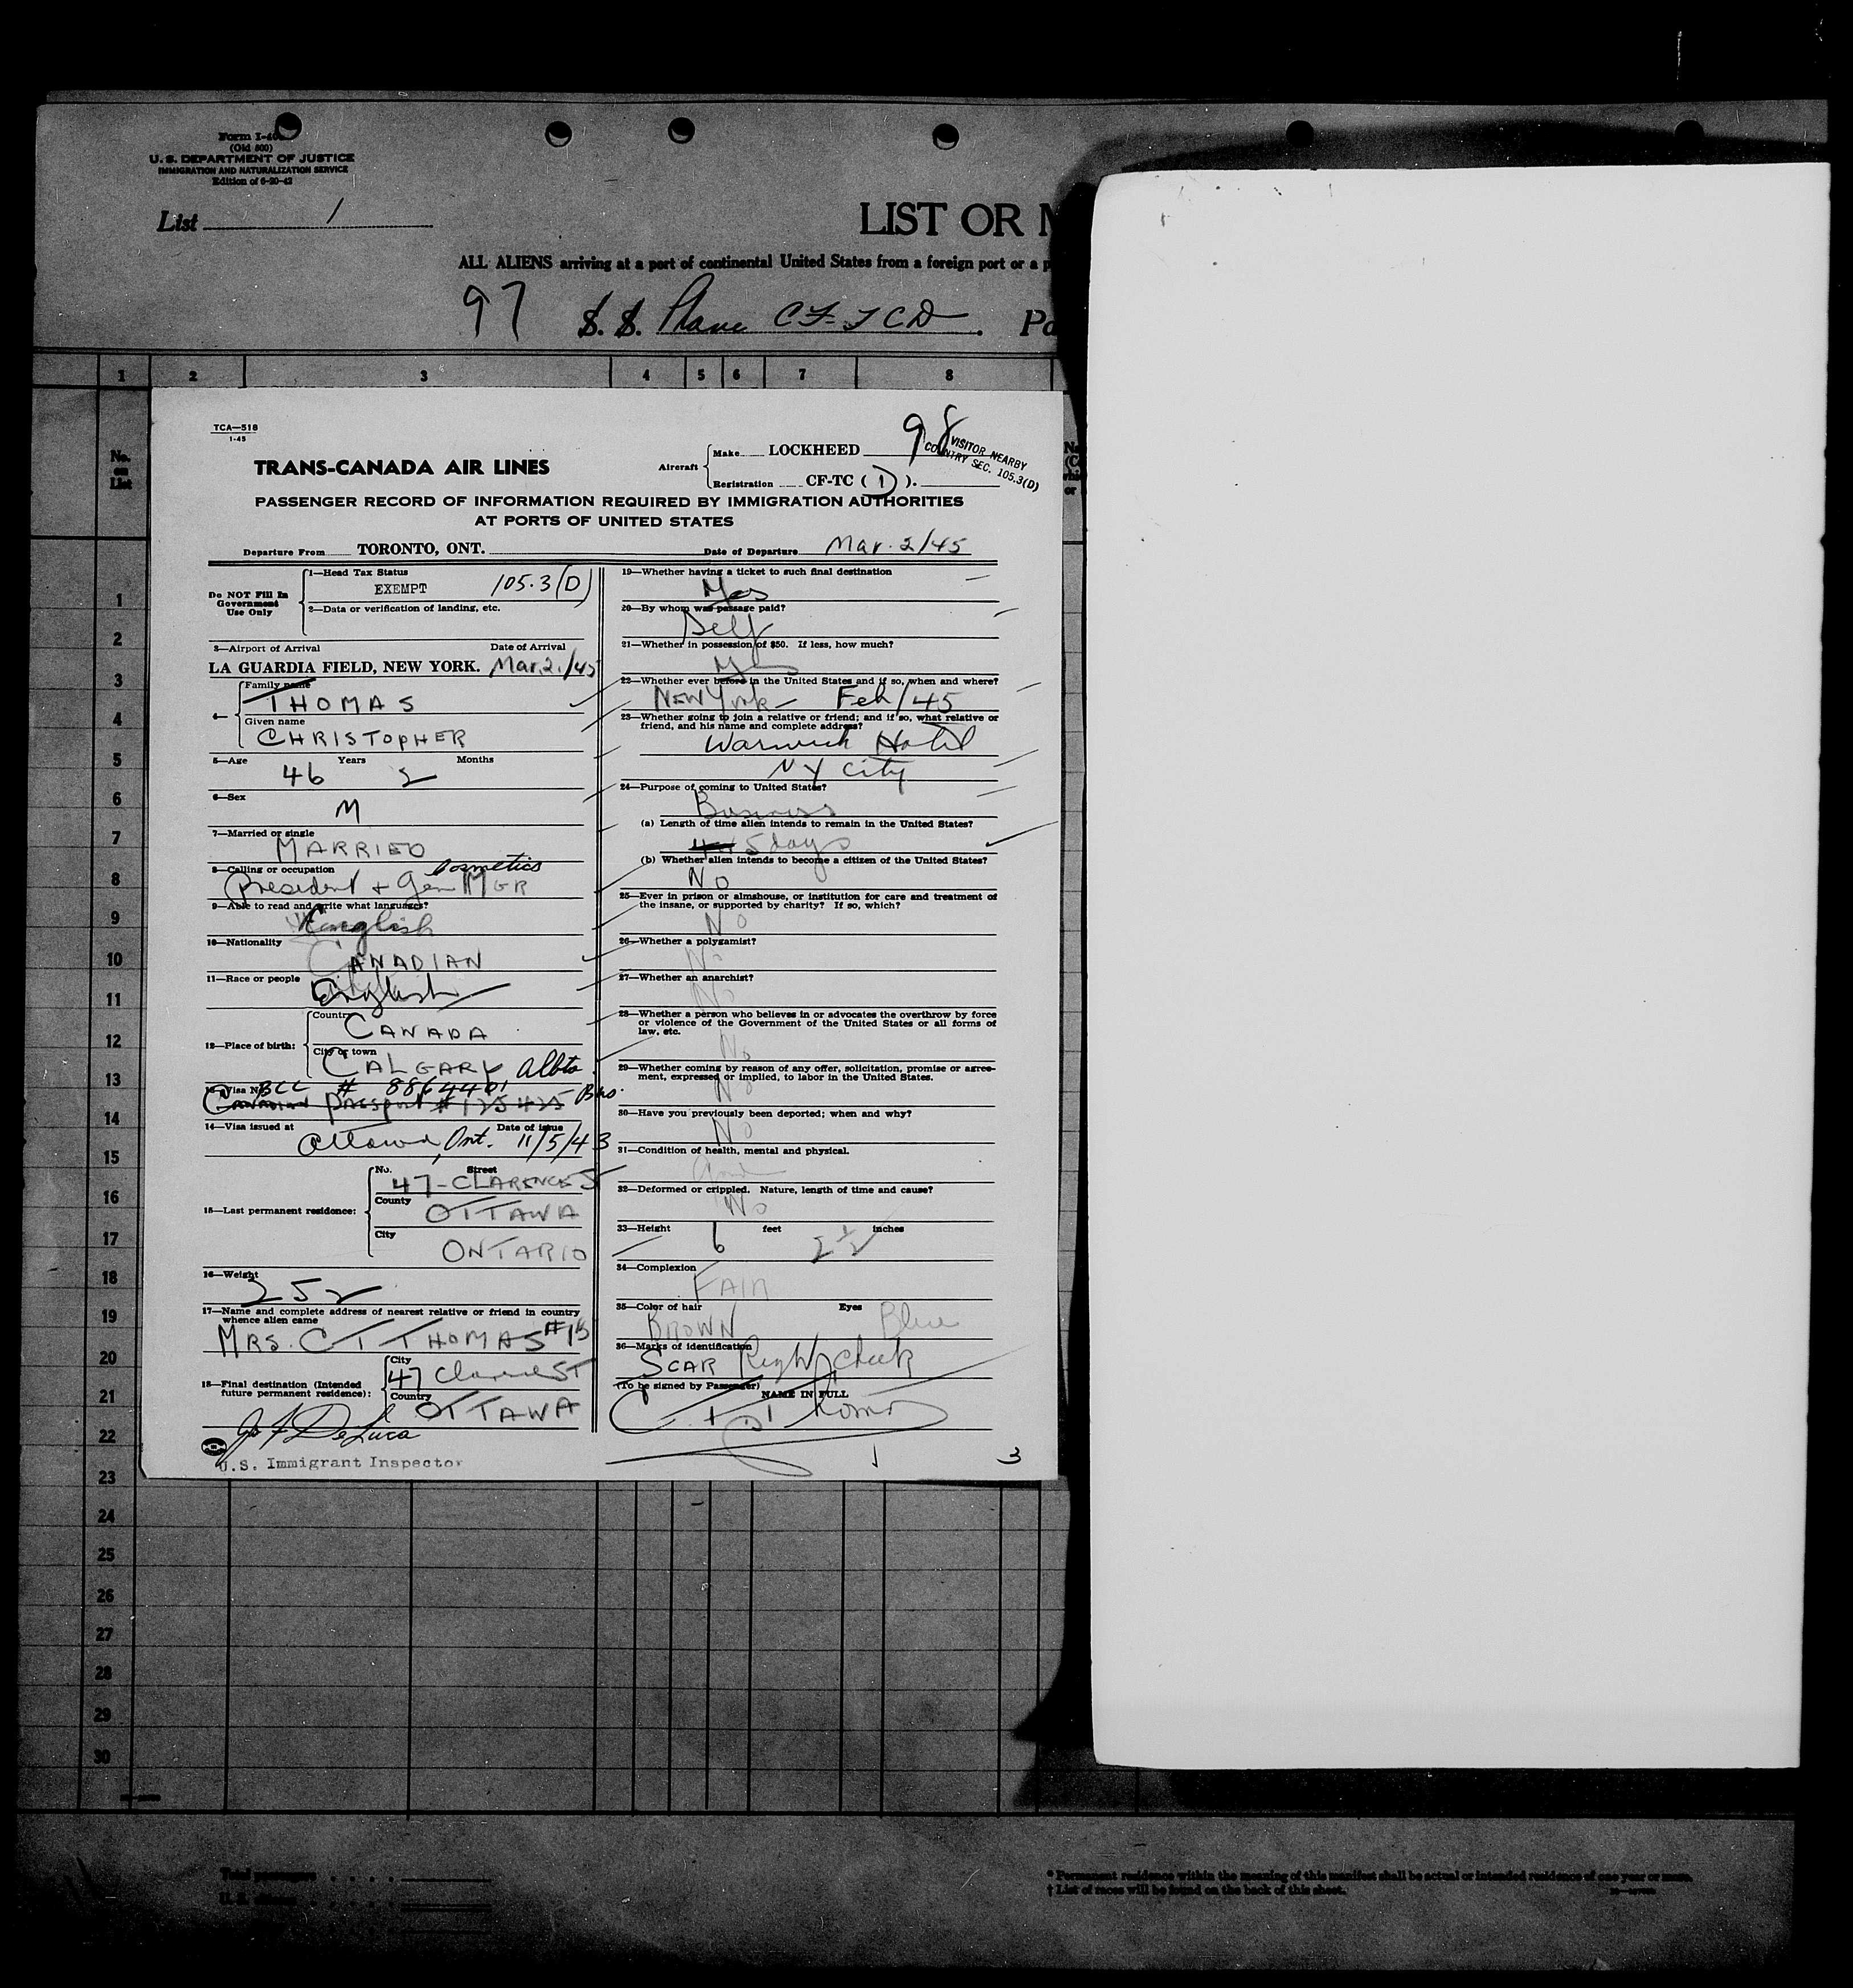 Form I-4
(Old 500)
U. S. DEPARTMENT OF JUSTICE
IMMIGRATION AND NATURALIZATION SERVICE
Edition of 6-20-42
List 1
LIST OR M
ALL ALIENS arriving at a port of continental United States from a foreign port or a p
97 S. S. Plane CF-TCD. Po
1 2 3 4 5 6 7 8
No. on List
TCA—518
1-45
98
VISITOR NEARBY
COUNTRY SEC. 105.3(D)
TRANS-CANADA AIR LINES
Aircraft
Make LOCKHEED
Registration CF-TC ( D ).
PASSENGER RECORD OF INFORMATION REQUIRED BY IMMIGRATION AUTHORITIES
AT PORTS OF UNITED STATES
Departure From TORONTO, ONT. Date of Departure Mar. 2/45
Do NOT Fill In
Government
Use Only
1—Head Tax Status
EXEMPT 105.3(D)
2—Data or verification of landing, etc.
3—Airport of Arrival Date of Arrival
LA GUARDIA FIELD, NEW YORK. Mar. 2./45
4—
Family name
THOMAS
Given name
CHRISTOPHER
5—Age Years Months
46 2
6—Sex
M
7—Married or single
MARRIED
8—Calling or occupation cosmetics
President + Gen MGR
9—Able to read and write what languages?
English
10—Nationality
CANADIAN
11—Race or people
English
12—Place of birth:
Country
CANADA
City or town
CALGARY Albta
13—Visa No. BCC # 8864401
Canadian Passport # 125425 Bus.
14—Visa issued at Date of issue
Ottawa, Ont. 11/5/43
15—Last permanent residence:
No. Street
47-CLARENCE ST
County
OTTAWA
City
ONTARIO
16—Weight
252
17—Name and complete address of nearest relative or friend in country
whence alien came
MRS. C T THOMAS #18
18—Final destination (Intended
future permanent residence):
City
47 Clarence ST
Country
OTTAWA
De Luca
U.S. Immigrant Inspector
19—Whether having a ticket to such final destination
Yes
20—By whom was passage paid?
Self
21—Whether in possession of $50. If less, how much?
Yes
22—Whether ever before in the United States and if so, when and where?
New York - Feb/45
23—Whether going to join a relative or friend; and if so, what relative or
friend, and his name and complete address?
Warwick Hotel
NY City
24—Purpose of coming to United States?
Business
(a) Length of time alien intends to remain in the United States?
5 days
(b) Whether alien intends to become a citizen of the United States?
No
25—Ever in prison or almshouse, or institution for care and treatment of
the insane, or supported by charity? If so, which?
No
26—Whether a polygamist?
No
27—Whether an anarchist?
No
28—Whether a person who believes in or advocates the overthrow by force
or violence of the Government of the United States or all forms of
law, etc.
No
29—Whether coming by reason of any offer, solicitation, promise or agree-
ment, expressed or implied, to labor in the United States.
No
30—Have you previously been deported; when and why?
No
31—Condition of health, mental and physical.
Good
32—Deformed or crippled. Nature, length of time and cause?
No
33—Height 6 feet 2 1/2 inches
34—Complexion
FAIR
35—Color of hair Eyes
BROWN Blue
36—Marks of identification
SCAR Right cheek
(To be signed by Passenger) NAME IN FULL
C. T. Thomas
3
1
2
3
4
5
6
7
8
9
10
11
12
13
14
15
16
17
18
19
20
21
22
23
24
25
26
27
28
29
30
Total passengers
U. S. citizens
* Permanent residence within the meaning of this manifest shall be actual or intended residence of one year or more.
† List of races will be found on the back of this sheet.